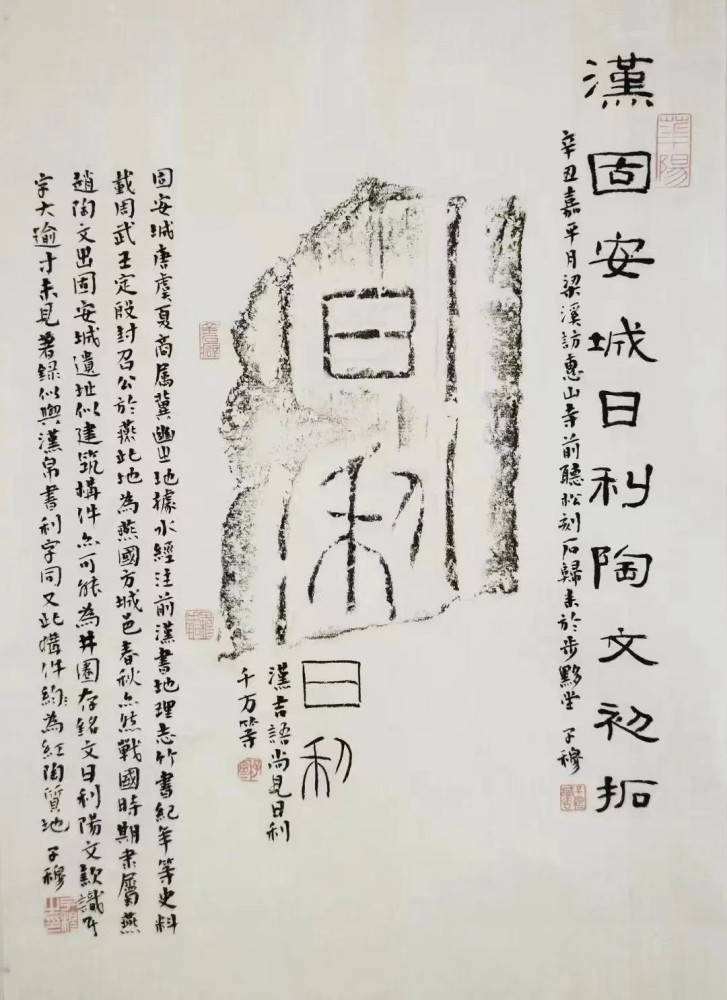 漢固安城日利陶文初拓
華陽
辛丑嘉平月梁溪訪惠山寺前聽松刻石歸來於步黟堂 子穆
日利
日利
漢吉語尚見日利
千万等
固安城唐虞夏商属冀幽之地據水經注前漢書地理志竹書紀年等史料
載周武王定殷封召公於燕此地為燕國方城邑春秋亦然戰國時期隶屬燕
趙陶文出固安城遺址似建筑構件亦可能為井圈存銘文日利陽文款識
字大逾寸未見著録似與漢帛書利字同又此構件約為紅陶質地 子穆